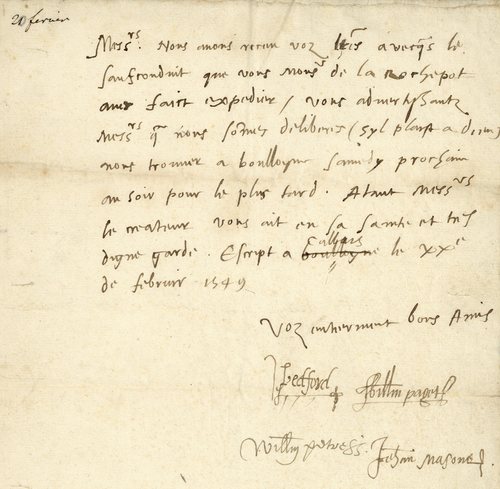 20 fevrier
Messrs. Nous avons receu voz lres avecqs le
saufconduit que vous Monsr de la Rochepot
avez faict expedier / vous advertissantz
Messrs q nous sommes deliberes (syl plaist a dieu)
nous trouver a boulloyne samedy prochain
au soir pour le plus tard. Atant Messrs
le createur vous ait en sa saincte et tres
digne garde. Escript a boulloyne Callais le xxe
de febvrir 1549
Voz entierement bons Amis
J Bedford Willm paget
Willm petress. Jehan Masone